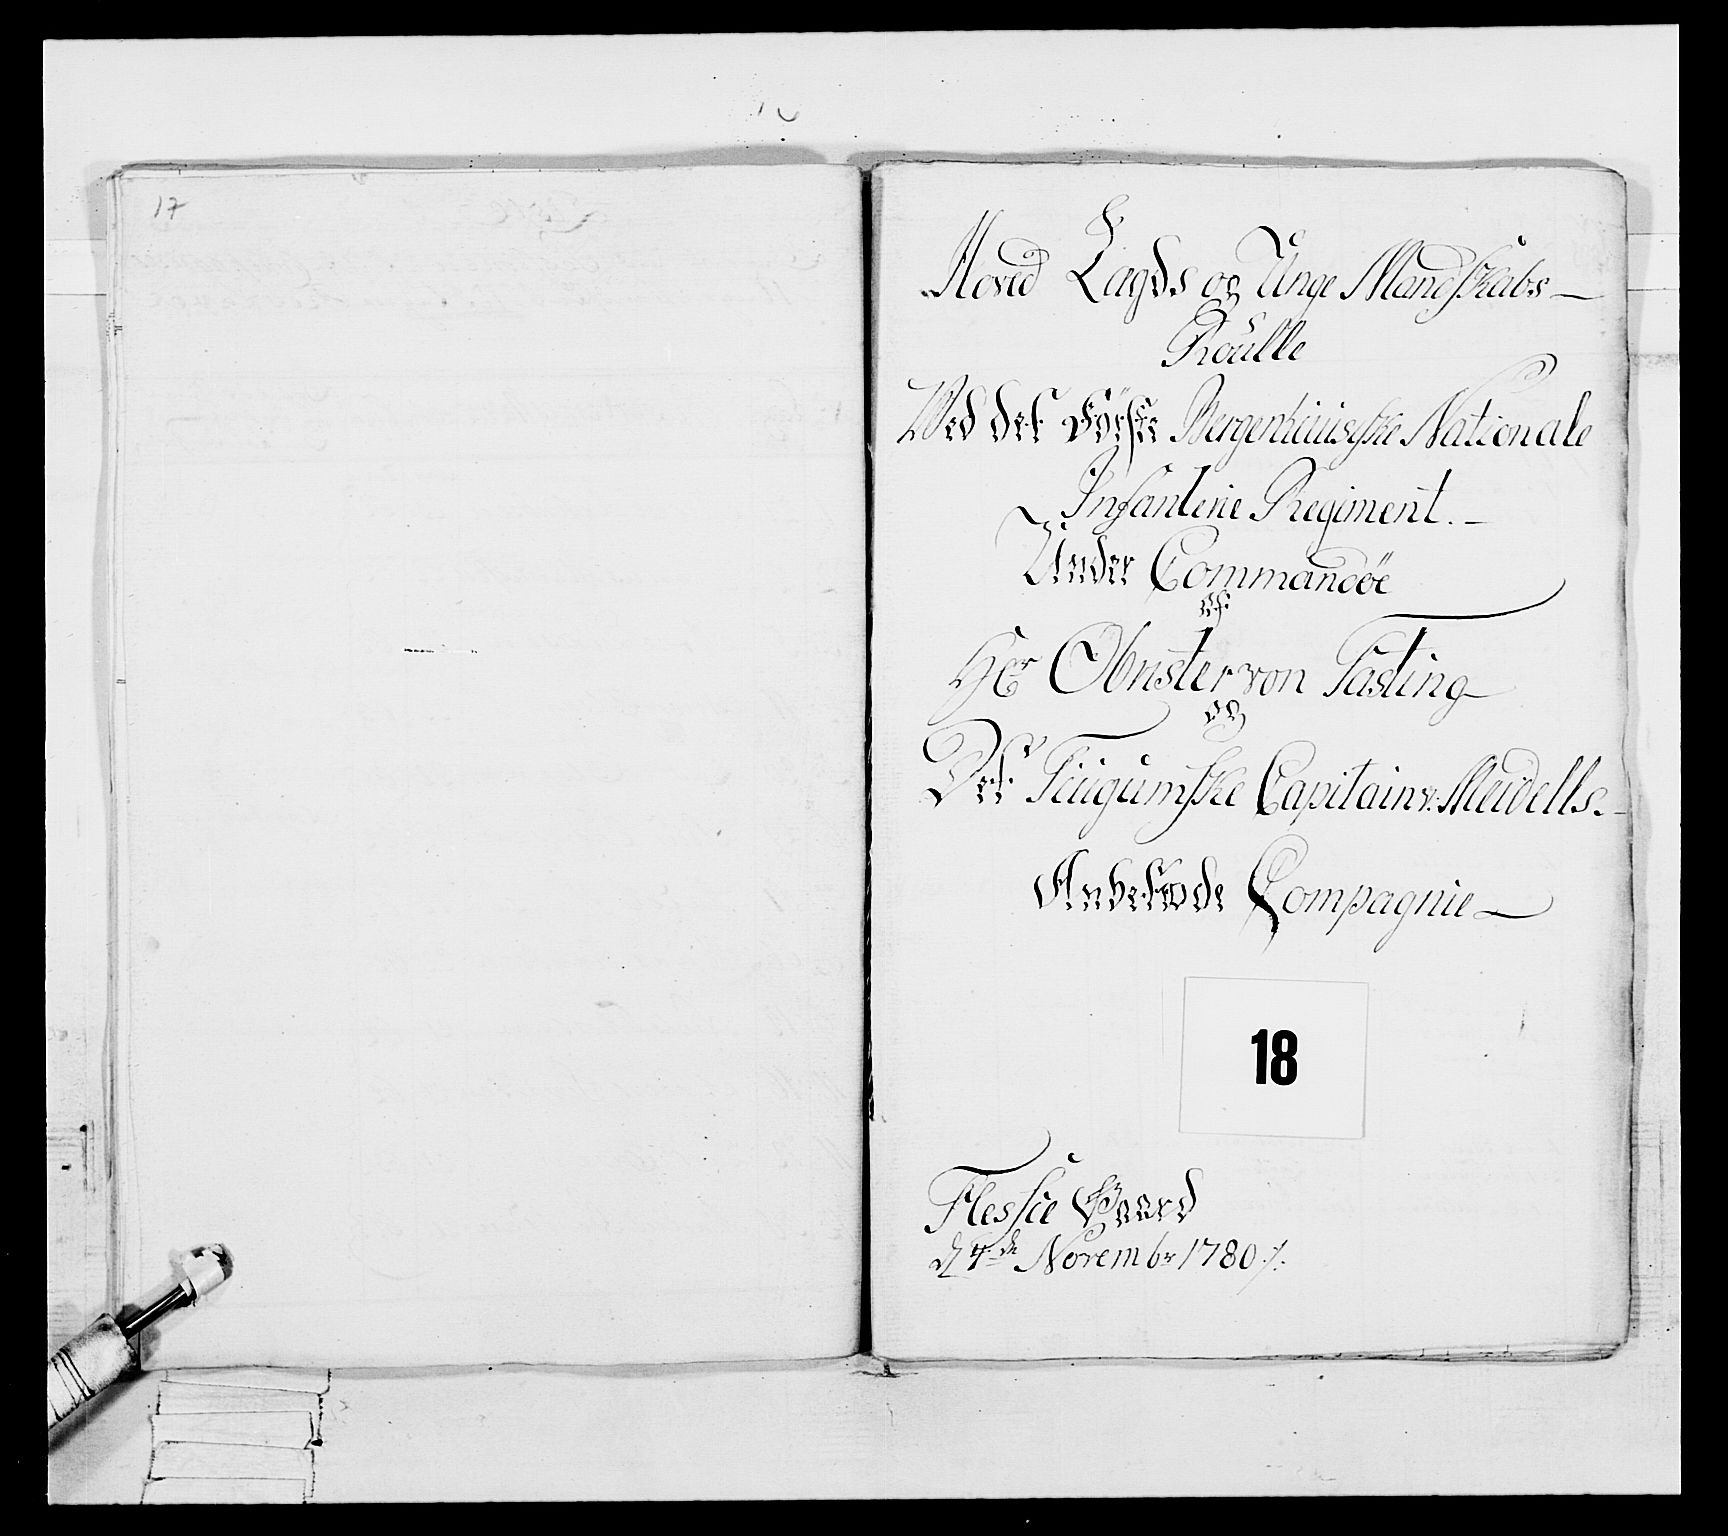 17
Hoved Lægds og Unge Mandskabs
Roulle
Ved det Förste Bergenhuusiske Nationale
Infanterie Regiment.
Under Commandoe
af
Hr Obrister von Fasting
og
Det Teigumske Capitain v: Meidells
Anbetrode Compagnie
18
Flessie Gaard
d 4de Novembr 1780 ⁒